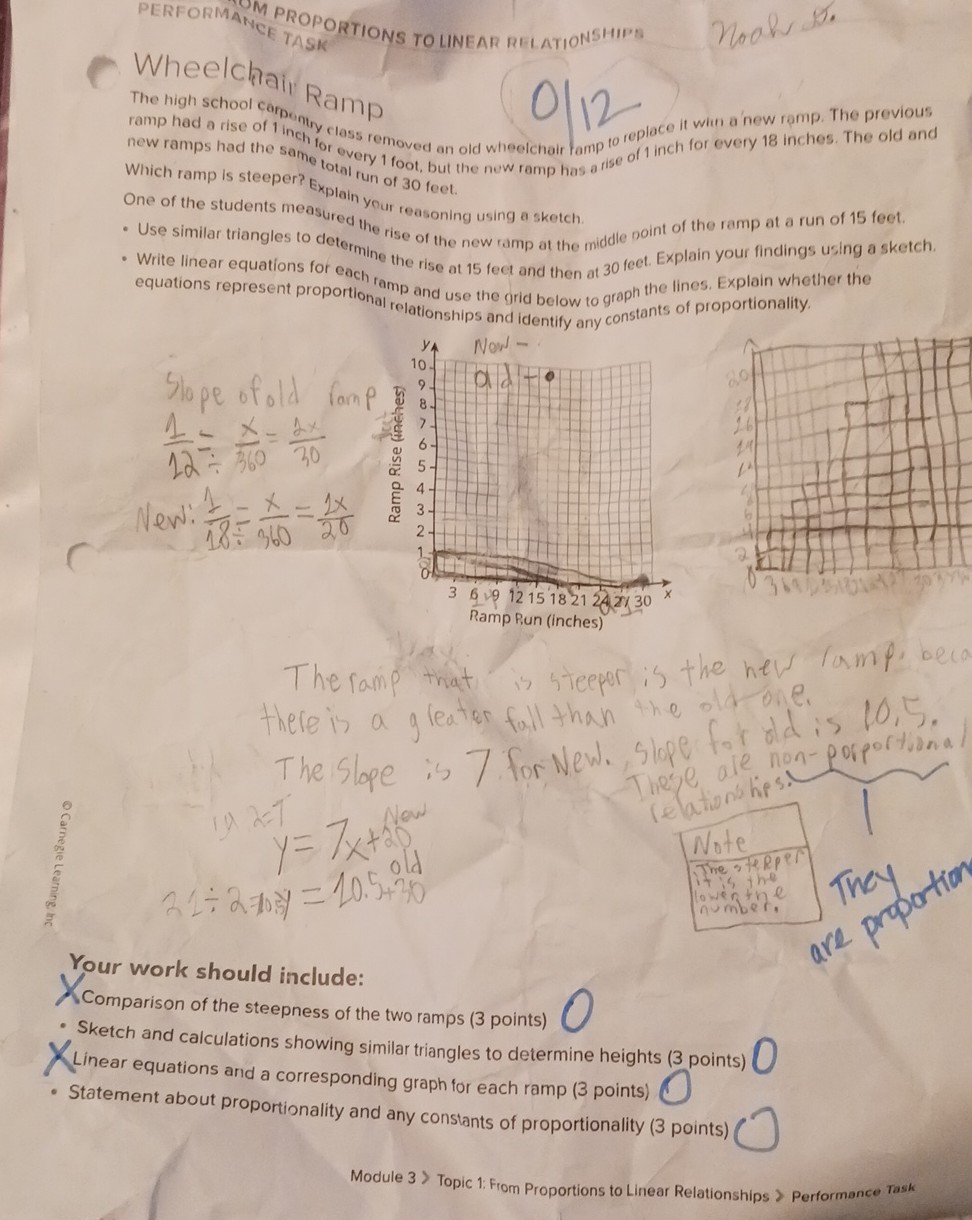 OM PROPORTIONS TO LINEAR RELATIONSHIPS
PERFORMANCE TASK
Noah D.
Wheelchair Ramp
0/12
The high school carpentry class removed an old wheelchair ramp to replace it with a new ramp. The previous
ramp had a rise of 1 inch for every 1 foot, but the new ramp has a rise of 1 inch for every 18 inches. The old and
new ramps had the same total run of 30 feet.
Which ramp is steeper? Explain your reasoning using a sketch.
One of the students measured the rise of the new ramp at the middle point of the ramp at a run of 15 feet.
• Use similar triangles to determine the rise at 15 feet and then at 30 feet. Explain your findings using a sketch.
• Write linear equations for each ramp and use the grid below to graph the lines. Explain whether the
equations represent proportional relationships and identify any constants of proportionality.
Slope of old ramp
1/12 ÷ = x/360 = 1x/30
New: 1/18 ÷ = x/360 = 1x/20
y
New -
old - •
10
9
8
7
6
5
4
3
2
1
0
Ramp Rise (inches)
3 6 9 12 15 18 21 24 27 30 x
Ramp Run (inches)
The ramp that is steeper is the new ramp. beca
there is a greater fall than the old one.
The slope is 7 for New. slope for old is 10.5.
These are non-porportional
relationships.
New
y = 7x+20
old
21÷2= = 10.5+30
Note
The steeper
it is the
lower the
number.
They
are proportion
© Carnegie Learning, Inc.
Your work should include:
X Comparison of the steepness of the two ramps (3 points) 0
• Sketch and calculations showing similar triangles to determine heights (3 points) 0
X Linear equations and a corresponding graph for each ramp (3 points) 0
• Statement about proportionality and any constants of proportionality (3 points) 0
Module 3 > Topic 1: From Proportions to Linear Relationships > Performance Task